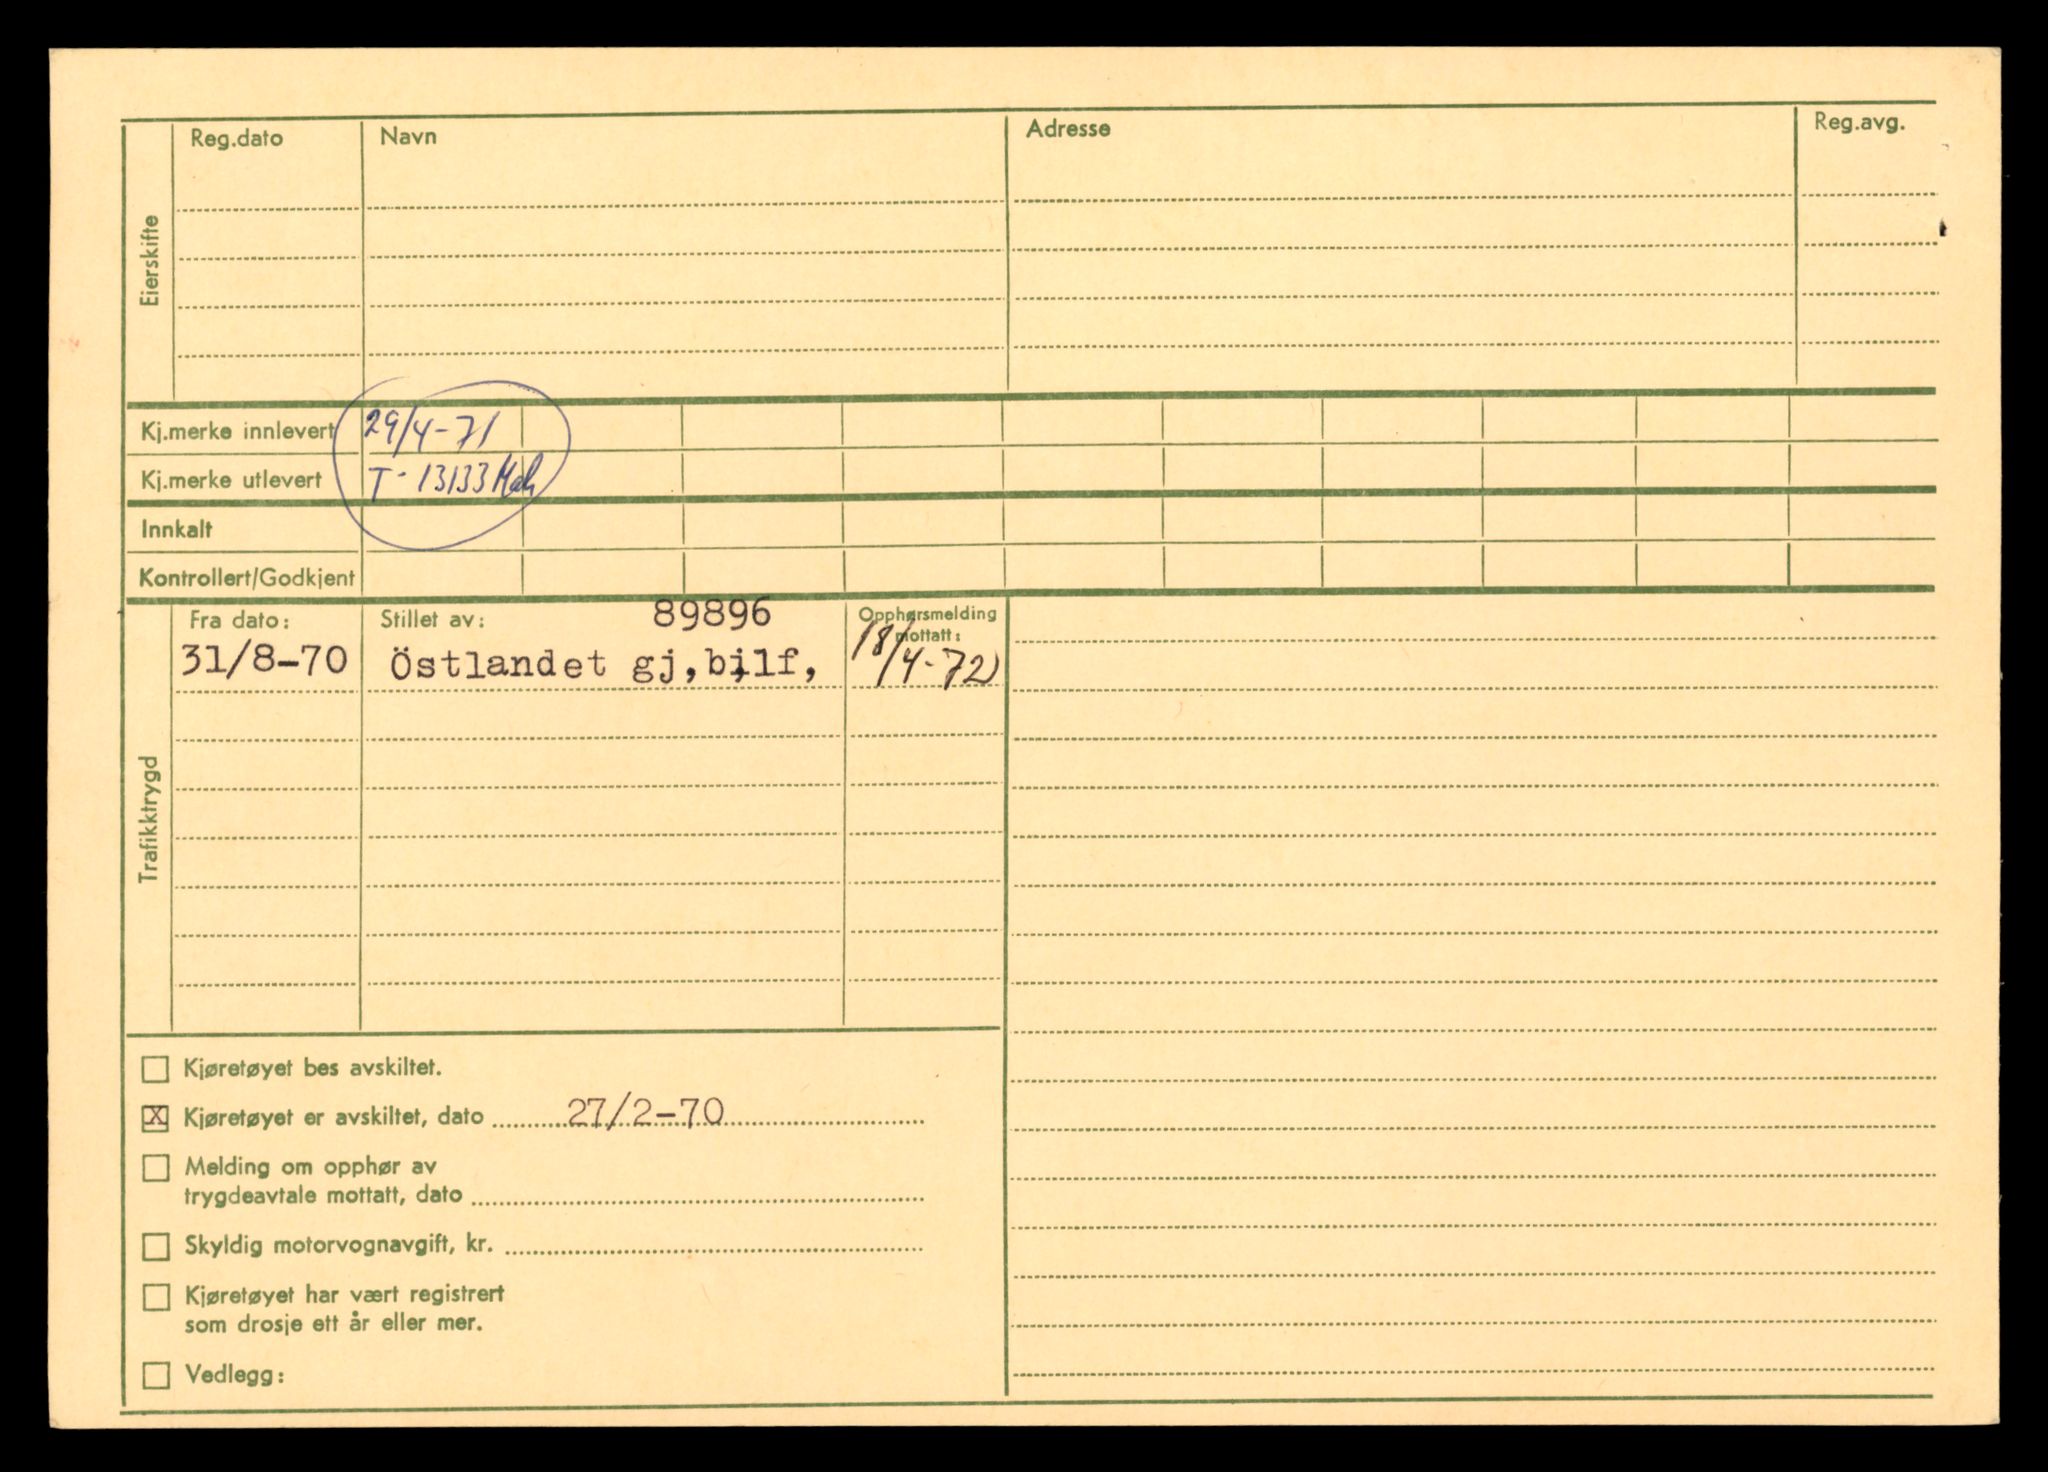 Eierskifte
Reg.dato Navn Adresse Reg.avg.
Kj.merke innlevert 29/4-71
Kj.merke utlevert T-13133
Innkalt
Kontrollert/Godkjent
Trafikktrygd
Fra dato: Stillet av: 89896 Opphørsmelding
mottatt:
31/8-70 Östlandet gj,bilf, 18/4-72
Kjøretøyet bes avskiltet.
X Kjøretøyet er avskiltet, dato 27/2-70
Melding om opphør av
trygdeavtale mottatt, dato
Skyldig motorvognavgift, kr.
Kjøretøyet har vært registrert
som drosje ett år eller mer.
Vedlegg: